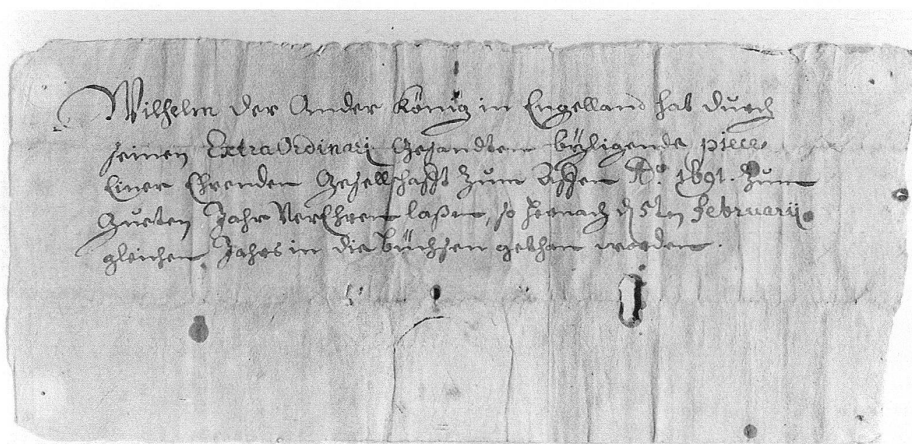 Wilhelm der Ander König in Engelland hat durch
seinen ExtraOrdinari Gesandten bÿligende piece
Einer Ehrenden Gesellschafft zum Affen Aº 1691. zum
Gueten Jahr Verehren laßen, so hernach d 5ten Februarÿ
gleichen Jahrs in die büchsen gethan worden.